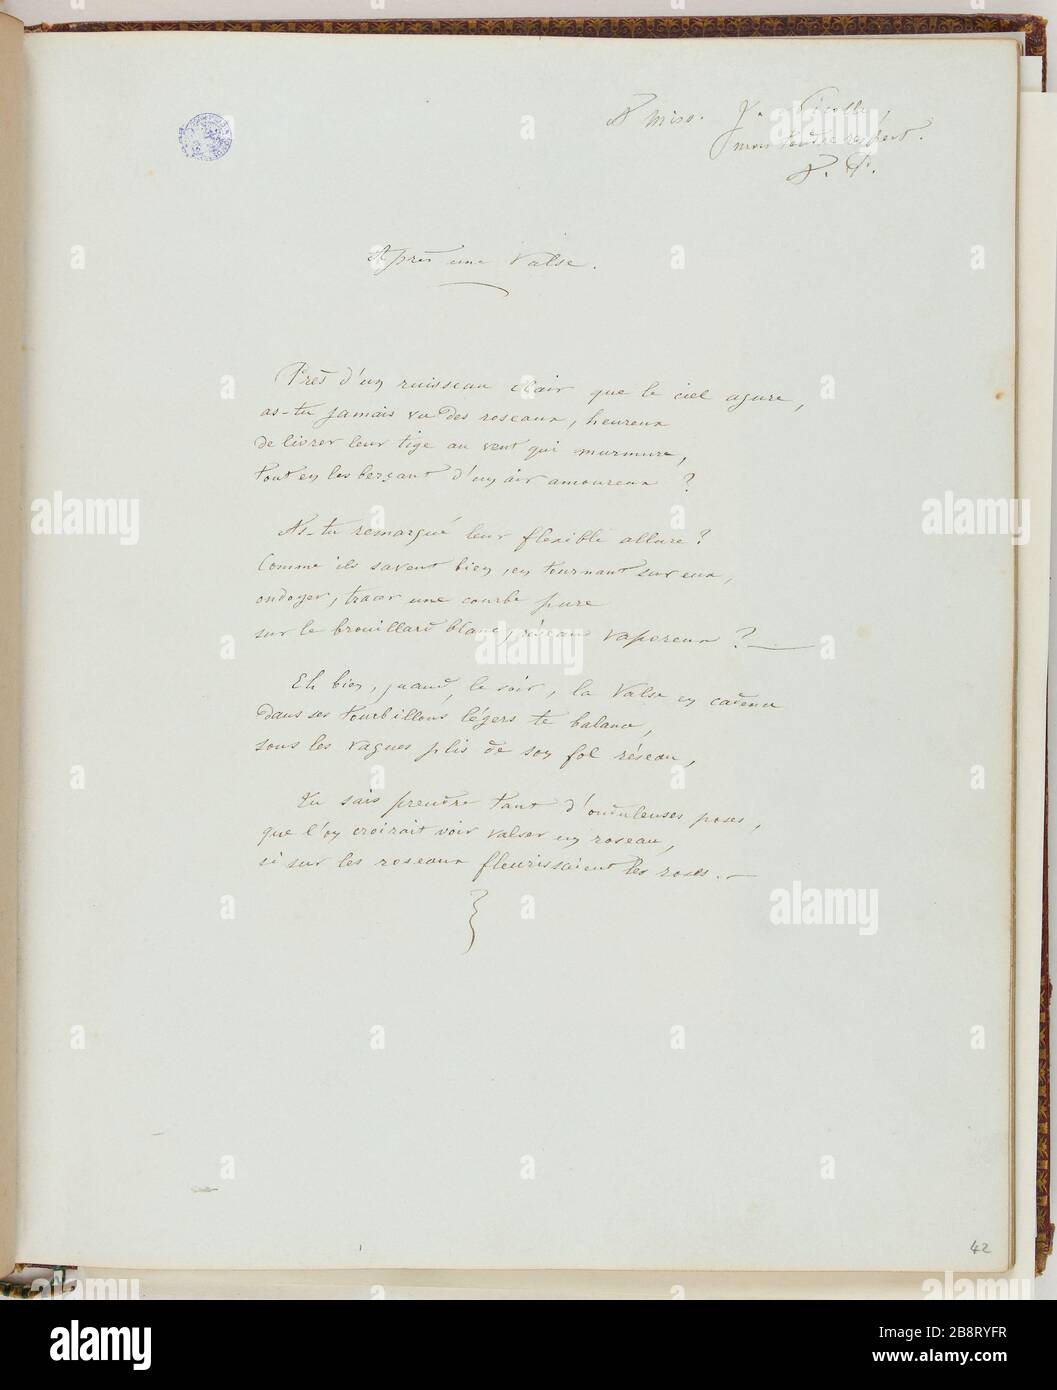 A Miss.
mon tendre respect.
Après une Valse.
Près d'un ruisseau clair que le ciel azure,
as-tu jamais vu des roseaux, heureux
de livrer leur tige au vent qui murmure,
tout en les berçant d'un air amoureux ?
As-tu remarqué leur flexible allure ?
Comme ils savent bien, en tournant sur eux,
ondoyer, tracer une courbe pure
sur le brouillard blanc, réseau vaporeux ? —
Eh bien, quand, le soir, la Valse en cadence
Dans ses tourbillons légers te balance,
sous les vagues plis de son fol réseau,
Tu sais prendre tant d'onduleuses poses,
que l'on croirait voir valser un roseau,
si sur les roseaux fleurissaient les roses. —
42
alamy
Image ID: 2B8RYFR
www.alamy.com